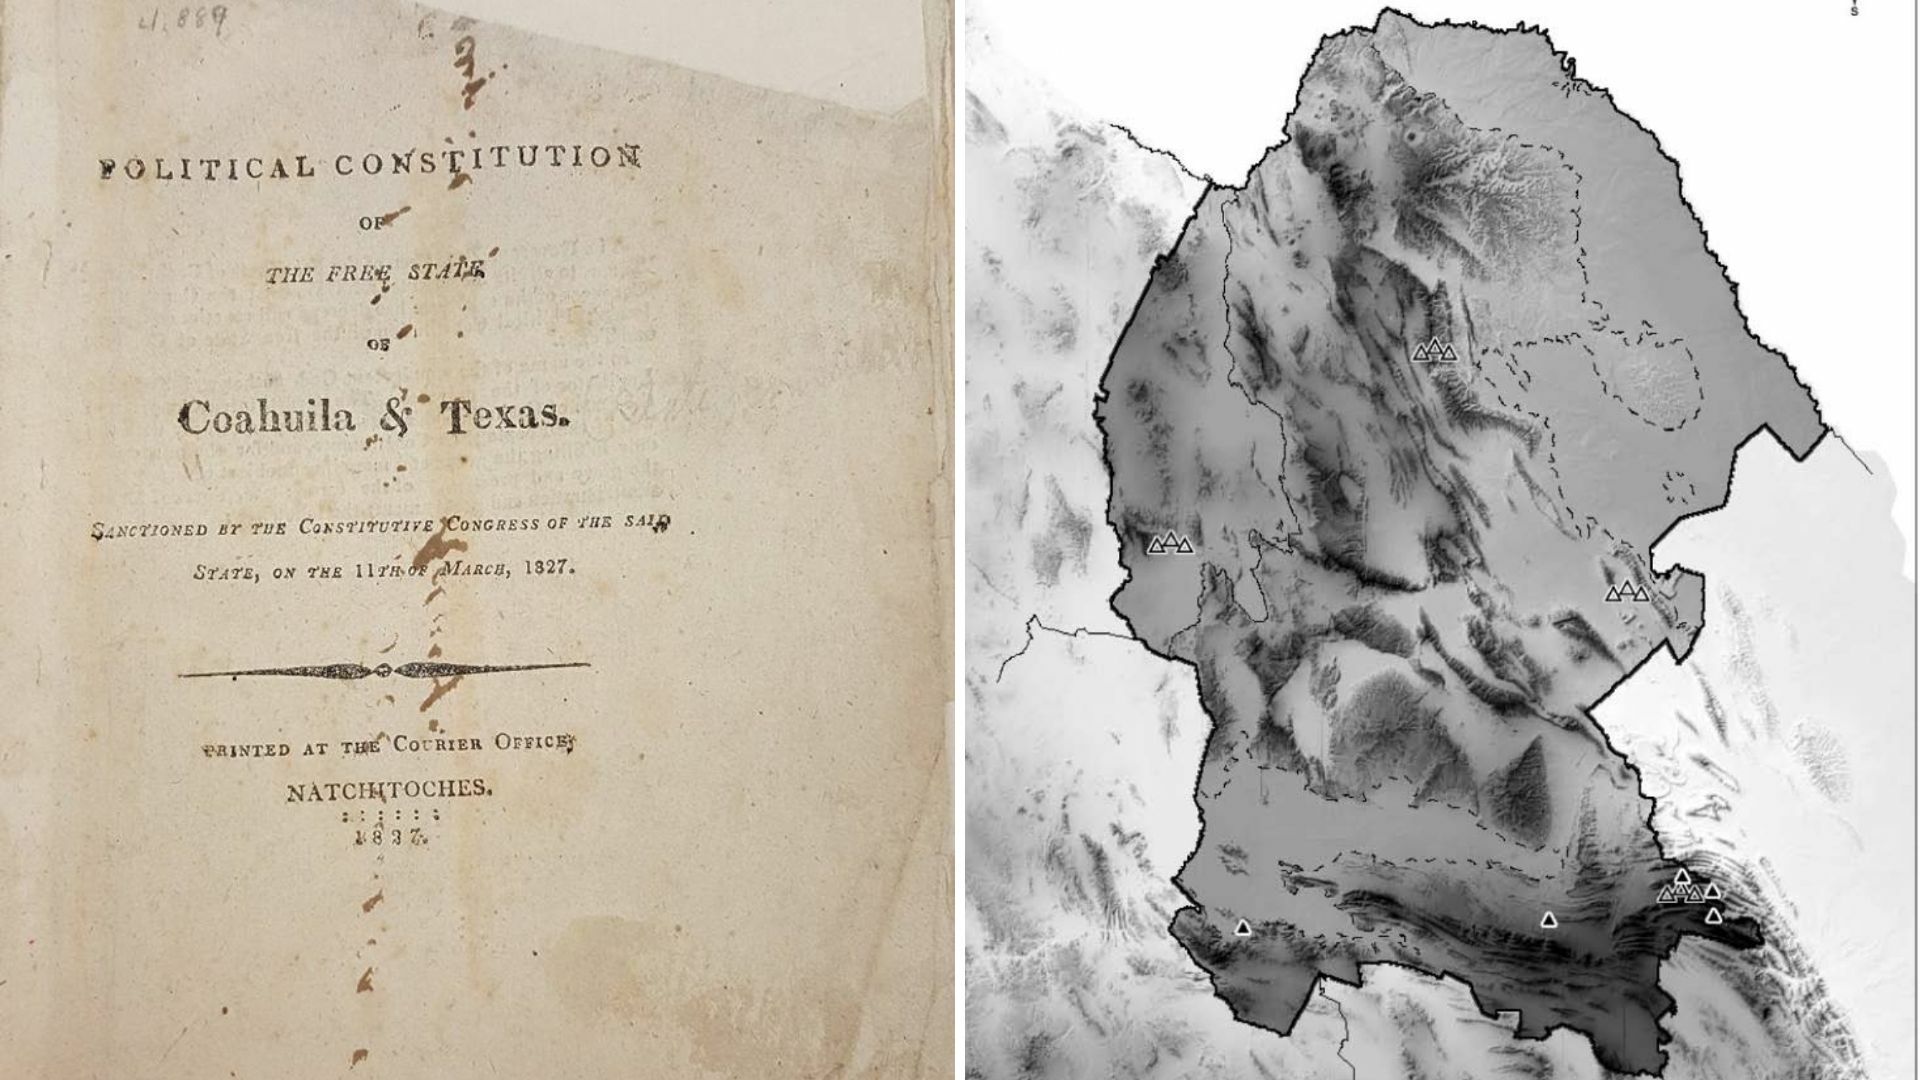 4.889
POLITICAL CONSTITUTION
OF
THE FREE STATE
OF
Coahuila & Texas.
SANCTIONED BY THE CONSTITUTIVE CONGRESS OF THE SAID
STATE, ON THE 11TH OF MARCH, 1827.
PRINTED AT THE COURIER OFFICE,
NATCHITOCHES.
1827.
S